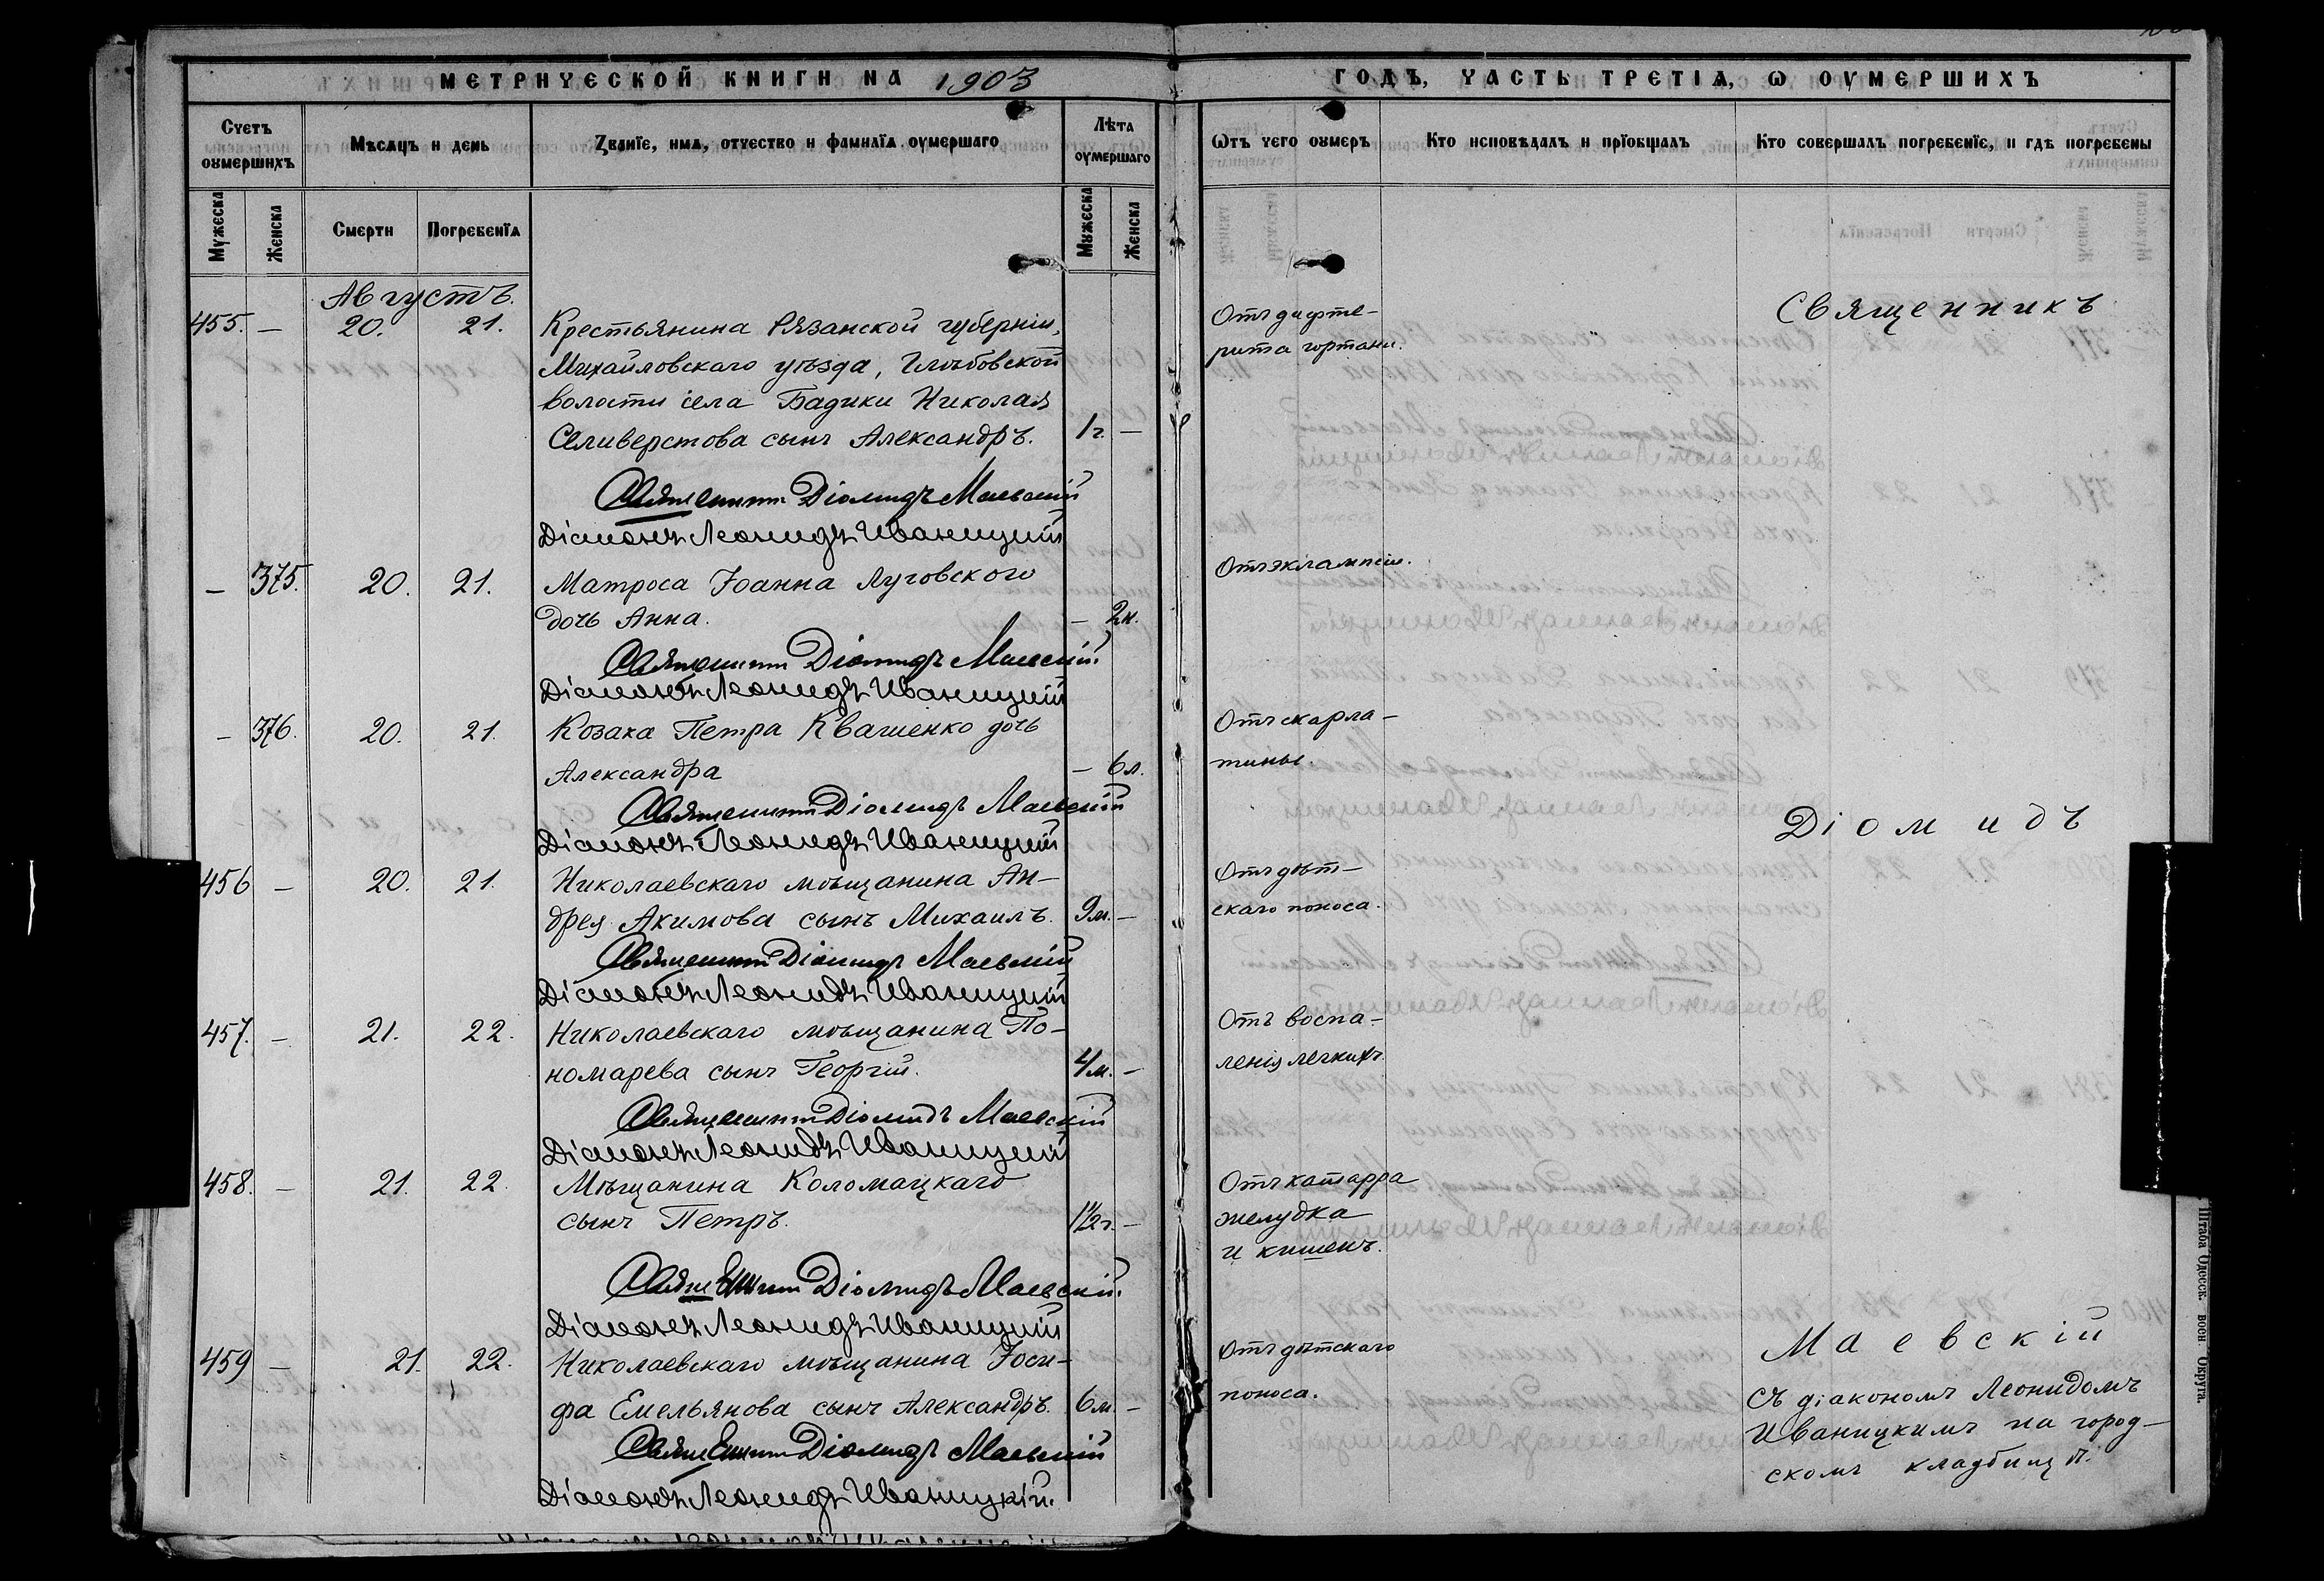 МЕТРИЧЕСКОЙ КНИГИ НА 1903
ГОДЪ, ЧАСТЬ ТРЕТІѦ, Ѡ ОУМЕРШИХЪ
Счетъ оумершихъ
Мѣсѧцъ и день
Званїе, имѧ, отчество и фамилїѧ оумершаго
Лѣта оумершаго
Ѿтъ чего оумеръ
Кто исповѣдалъ и прїобщалъ
Кто совершалъ погребенїе, и гдѣ погребены
Мужеска
Женска
Смерти
Погребенїѧ
Мужеска
Женска
Августъ.
455. — 20. 21. Крестьянина Рязанской губерніи,
Михайловскаго уѣзда, Глѣбовской
волости села Бадики Николая
Селиверстова сынъ Александръ. 1г. —
Отъ дифте-
рита гортани.
Священникъ Діомидъ Маевскій
Діаконъ Леонидъ Иваницкій
— 375. 20. 21. Матроса Іоанна Луговского
дочь Анна. — 2н.
Отъ эклампсіи.
Священникъ Діомидъ Маевскій
Діаконъ Леонидъ Иваницкій
— 376. 20. 21. Козака Петра Квашенко дочь
Александра — 6л.
Отъ скарла-
тины.
Священникъ Діомидъ Маевскій
Діаконъ Леонидъ Иваницкій
456 — 20. 21. Николаевскаго мѣщанина Ан-
дрея Акимова сынъ Михаилъ. 9м. —
Отъ дѣт-
скаго поноса.
Священникъ Діомидъ Маевскій
Діаконъ Леонидъ Иваницкій
457. — 21. 22. Николаевскаго мѣщанина По-
номарева сынъ Георгій. 4м. —
Отъ воспа-
ленія легкихъ.
Священникъ Діомидъ Маевскій
Діаконъ Леонидъ Иваницкій
458. — 21. 22. Мѣщанина Коломацкаго
сынъ Петръ. 1½г. —
Отъ катарра
желудка
и кишекъ.
Священникъ Діомидъ Маевскій.
Діаконъ Леонидъ Иваницкій
459 — 21. 22. Николаевскаго мѣщанина Іоси-
фа Емельянова сынъ Александръ. 6м. —
Отъ дѣтскаго
поноса.
Священникъ Діомидъ Маевскій
Діаконъ Леонидъ Иваницкій.
Священникъ
Діомидъ
Маевскій
Съ діакономъ Леонидомъ
Иваницкимъ на город-
скомъ кладбищѣ.
Штаба Одесск. воен. Округа.